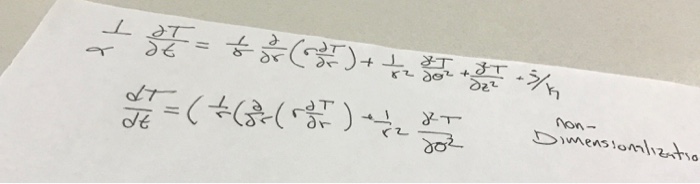 1/α ∂T/∂t = 1/r ∂/∂r (r ∂T/∂r) + 1/r² ∂²T/∂θ² + ∂²T/∂z² + q̇/k
dT/dt = (1/r (∂/∂r (r ∂T/∂r) + 1/r² ∂²T/∂θ²
non-
Dimensionlizatio